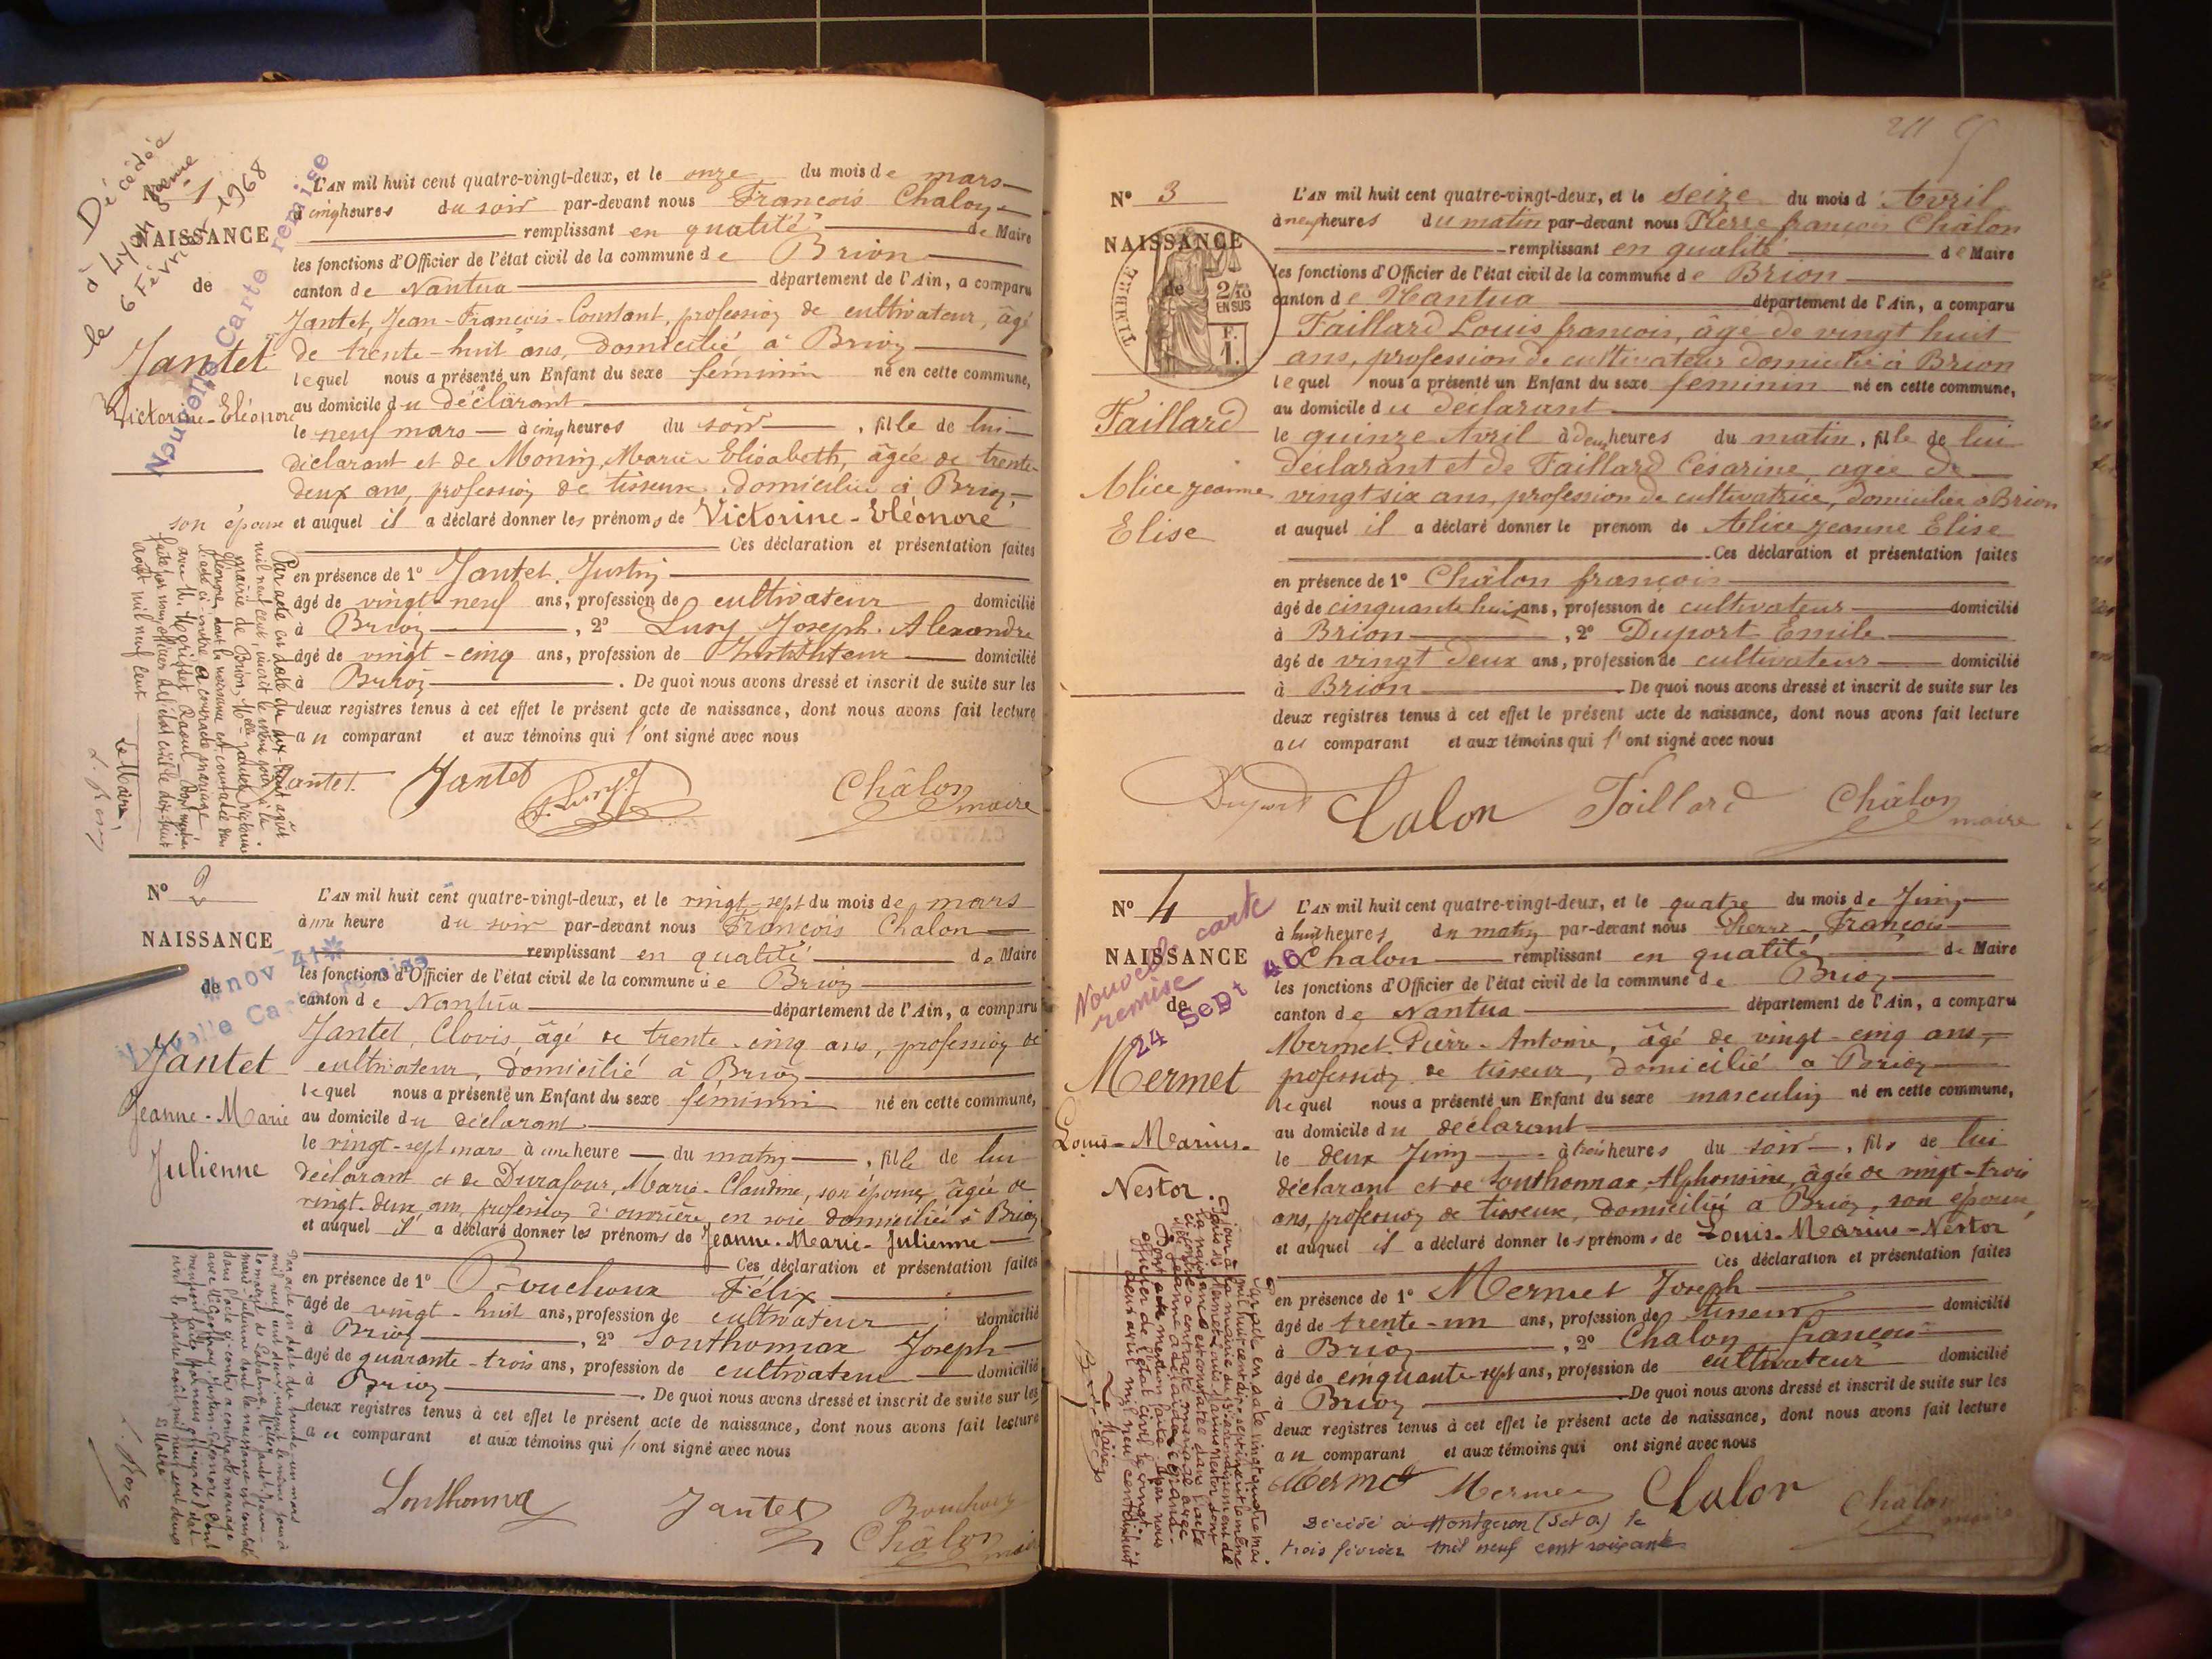 Décédée
à Lyon 3ème
le 6 Février 1968
1
NAISSANCE
de
Jantet
Victorine-Eléonore
Nouvelle Carte remise
L'AN mil huit cent quatre-vingt-deux, et le onze du mois de mars
à cinq heures du soir par-devant nous François Chalon
remplissant en qualité de Maire
les fonctions d'Officier de l'état civil de la commune de Brion
canton de Nantua département de l'Ain, a comparu
Jantet, Jean-François-Constant, profession de cultivateur, âgé
de trente-huit ans, domicilié à Brion
lequel nous a présenté un Enfant du sexe féminin né en cette commune,
au domicile du déclarant
le neuf mars à cinq heures du soir, fille de lui
déclarant et de Monin, Marie-Elisabeth, âgée de trente-
deux ans, profession de tisseuse domiciliée à Brion,
son épouse et auquel il a déclaré donner les prénoms de Victorine-Eléonore
Ces déclaration et présentation faites
en présence de 1° Jantet Justin
âgé de vingt-neuf ans, profession de cultivateur domicilié
à Brion, 2° Lusy Joseph-Alexandre
âgé de vingt-cinq ans, profession de Instituteur domicilié
à Brion. De quoi nous avons dressé et inscrit de suite sur les
deux registres tenus à cet effet le présent acte de naissance, dont nous avons fait lecture
au comparant et aux témoins qui l'ont signé avec nous
Jantet. Jantet Châlon maire
Par acte en date du dix-huit août
mil neuf cent, inscrit le même jour à la
mairie de Brion, Melle Jantet Victorine
Eléonore, dont la naissance est constatée dans
l'acte ci-contre a contracté mariage
avec M. Raoul. Dont mention
faite par nous, officier de l'état civil le dix-huit
août mil neuf cent
Le Maire,
N° 2
NAISSANCE
de
nov 41
Nouvelle Carte remise
Jantet
Jeanne-Marie
Julienne
L'AN mil huit cent quatre-vingt-deux, et le vingt-sept du mois de mars
à une heure du soir par-devant nous François Chalon
remplissant en qualité de Maire
les fonctions d'Officier de l'état civil de la commune de Brion
canton de Nantua département de l'Ain, a comparu
Jantet, Clovis, âgé de trente-cinq ans, profession de
cultivateur, domicilié à Brion
lequel nous a présenté un Enfant du sexe féminin né en cette commune,
au domicile du déclarant
le vingt-sept mars à une heure du matin, fille de lui
déclarant et de Durafour, Marie-Claudine, son épouse, âgée de
vingt-deux ans, profession d'ouvrière en soie domiciliée à Brion
et auquel il a déclaré donner les prénoms de Jeanne-Marie-Julienne
Ces déclaration et présentation faites
en présence de 1° Bouchoux Félix
âgé de vingt-huit ans, profession de cultivateur domicilié
à Brion, 2° Southonnax Joseph
âgé de quarante-trois ans, profession de cultivateur domicilié
à Brion. De quoi nous avons dressé et inscrit de suite sur les
deux registres tenus à cet effet le présent acte de naissance, dont nous avons fait lecture
au comparant et aux témoins qui l'ont signé avec nous
Southonnax Jantet Bouchoux
Châlon maire
Par acte en date du trente un mars
mil neuf cent deux, inscrit le même jour à
la mairie de Melle Jantet Jeanne-
Marie-Julienne dont la naissance est constatée
dans l'acte ci-contre a contracté mariage
Le Maire
N° 3
NAISSANCE
de
TIMBRE
2/10
EN SUS
F.
1.
Faillard
Alice Jeanne
Elise
L'AN mil huit cent quatre-vingt-deux, et le seize du mois d'Avril
à neuf heures du matin par-devant nous Pierre françois Châlon
remplissant en qualité de Maire
les fonctions d'Officier de l'état civil de la commune de Brion
canton de Nantua département de l'Ain, a comparu
Faillard Louis françois, âgé de vingt huit
ans, profession de cultivateur domicilié à Brion
lequel nous a présenté un Enfant du sexe feminin né en cette commune,
au domicile du déclarant
le quinze Avril à deux heures du matin, fille de lui
déclarant et de Faillard Césarine agée de
vingt six ans, profession de cultivatrice, domiciliée à Brion
et auquel il a déclaré donner le prénom de Alice Jeanne Elise
Ces déclaration et présentation faites
en présence de 1° Châlon françois
âgé de cinquante huit ans, profession de cultivateur domicilié
à Brion, 2° Duport Emile
âgé de vingt deux ans, profession de cultivateur domicilié
à Brion. De quoi nous avons dressé et inscrit de suite sur les
deux registres tenus à cet effet le présent acte de naissance, dont nous avons fait lecture
au comparant et aux témoins qui l'ont signé avec nous
Duport Calon Faillard Châlon maire
N° 4
NAISSANCE
de
Nouvelle carte
remise
24 SEPt 46
Mermet
Louis-Marius-
Nestor.
L'AN mil huit cent quatre-vingt-deux, et le quatre du mois de Juin
à huit heures du matin par-devant nous Pierre-François
Chalon remplissant en qualité de Maire
les fonctions d'Officier de l'état civil de la commune de Brion
canton de Nantua département de l'Ain, a comparu
Mermet Pierre-Antoine, âgé de vingt-cinq ans,
profession de tisseur, domicilié à Brion
lequel nous a présenté un Enfant du sexe masculin né en cette commune,
au domicile du déclarant
le deux Juin à trois heures du soir, fils de lui
déclarant et de Southonnax, Alphonsine, âgée de vingt-trois
ans, profession de tisseuse, domiciliée à Brion, son épouse,
et auquel il a déclaré donner les prénoms de Louis-Marius-Nestor
Ces déclaration et présentation faites
en présence de 1° Mermet Joseph
âgé de trente-un ans, profession de tisseur domicilié
à Brion, 2° Chalon François
âgé de cinquante-sept ans, profession de cultivateur domicilié
à Brion. De quoi nous avons dressé et inscrit de suite sur les
deux registres tenus à cet effet le présent acte de naissance, dont nous avons fait lecture
au comparant et aux témoins qui ont signé avec nous
Mermet Mermet Calon Châlon maire
Décédé à Montgeron (S et O) le
trois février mil neuf cent soixante
Le Maire